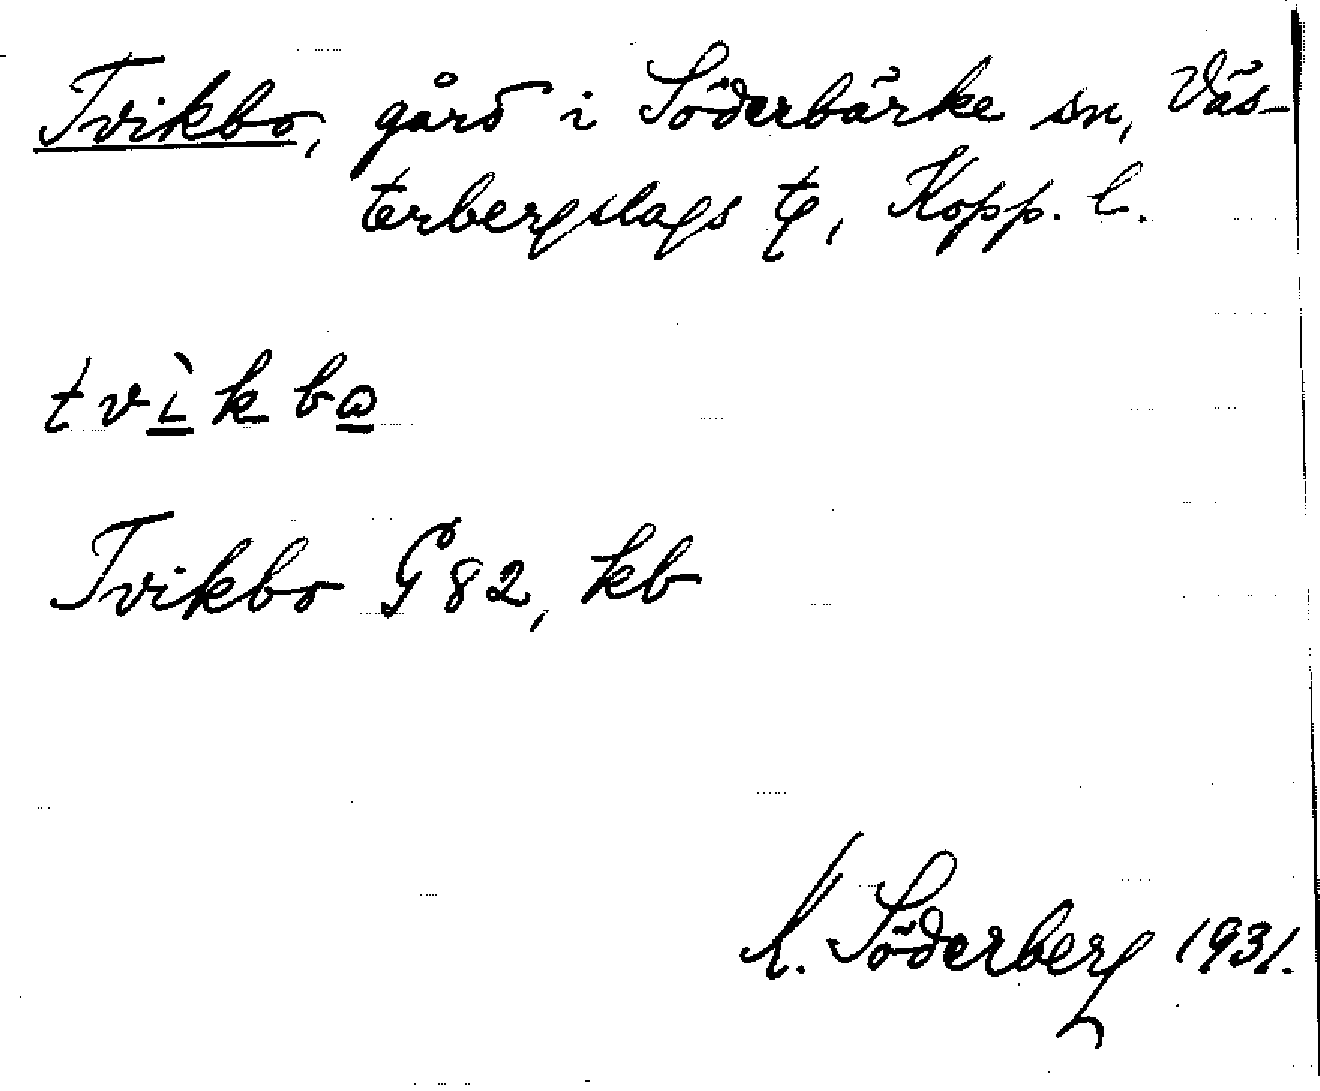 Tvikbo, gård i Söderbärke sn, Väs-
terbergslags tg, Kopp. l.
tvìkbɷ
Tvikbo G 82, kb
Söderberg 1931.